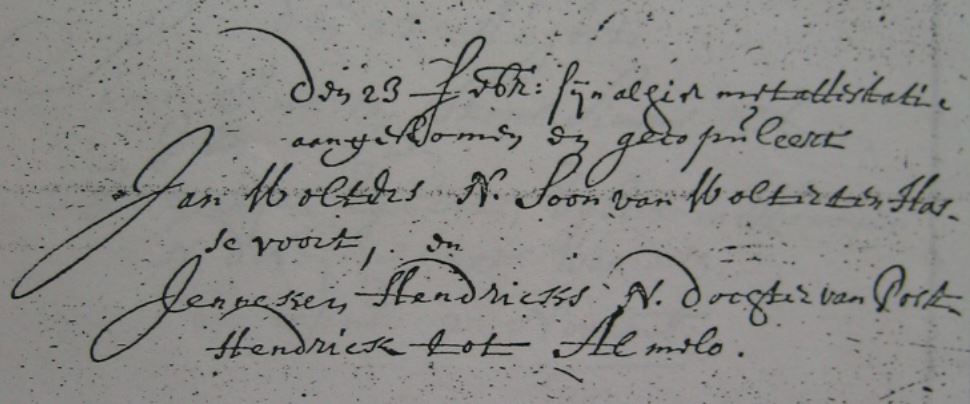 Den 23 Febr: sijn alhier met attestatie
aangekomen en gecopuleert
Jan Wolters N. Soon van Wolter ten Has-
se voort, en
Jenneken Hendricks N. dochter van Post
Hendrick tot Almelo.